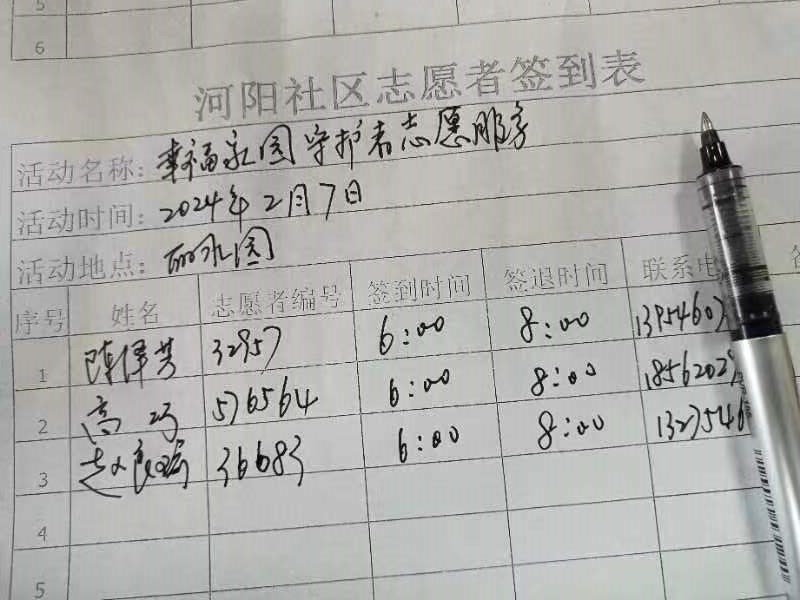 5
6
河阳社区志愿者签到表
活动名称：幸福家园守护者志愿服务
活动时间：2024年2月7日
活动地点：丽水园
序号 姓名 志愿者编号 签到时间 签退时间 联系电
1 32957 6:00 8:00 13954607
2 高巧 576564 6:00 8:00 1856202
3 36683 6:00 8:00 1327546
4
5